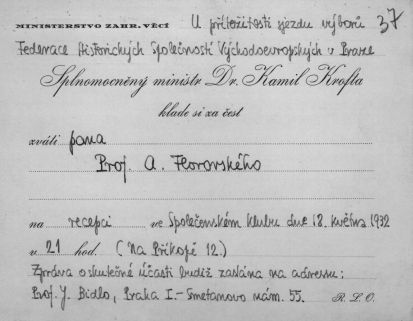 MINISTERSTVO ZAHR. VĚCÍ U příležitosti sjezdu výborů 37
Federace Historických Společností Východoevropských v Praze
Splnomocněný ministr Dr. Kamil Krofta
klade si za čest
zváti pana
Prof. A. Florovského
na recepci ve Společenském klubu dne 18. května 1932
v 21 hod. (Na Příkopě 12.)
Zpráva o skutečné účasti budiž zaslána na adresu:
Prof. J. Bidlo, Praha I.-Smetanovo nám. 55. R.L.O.